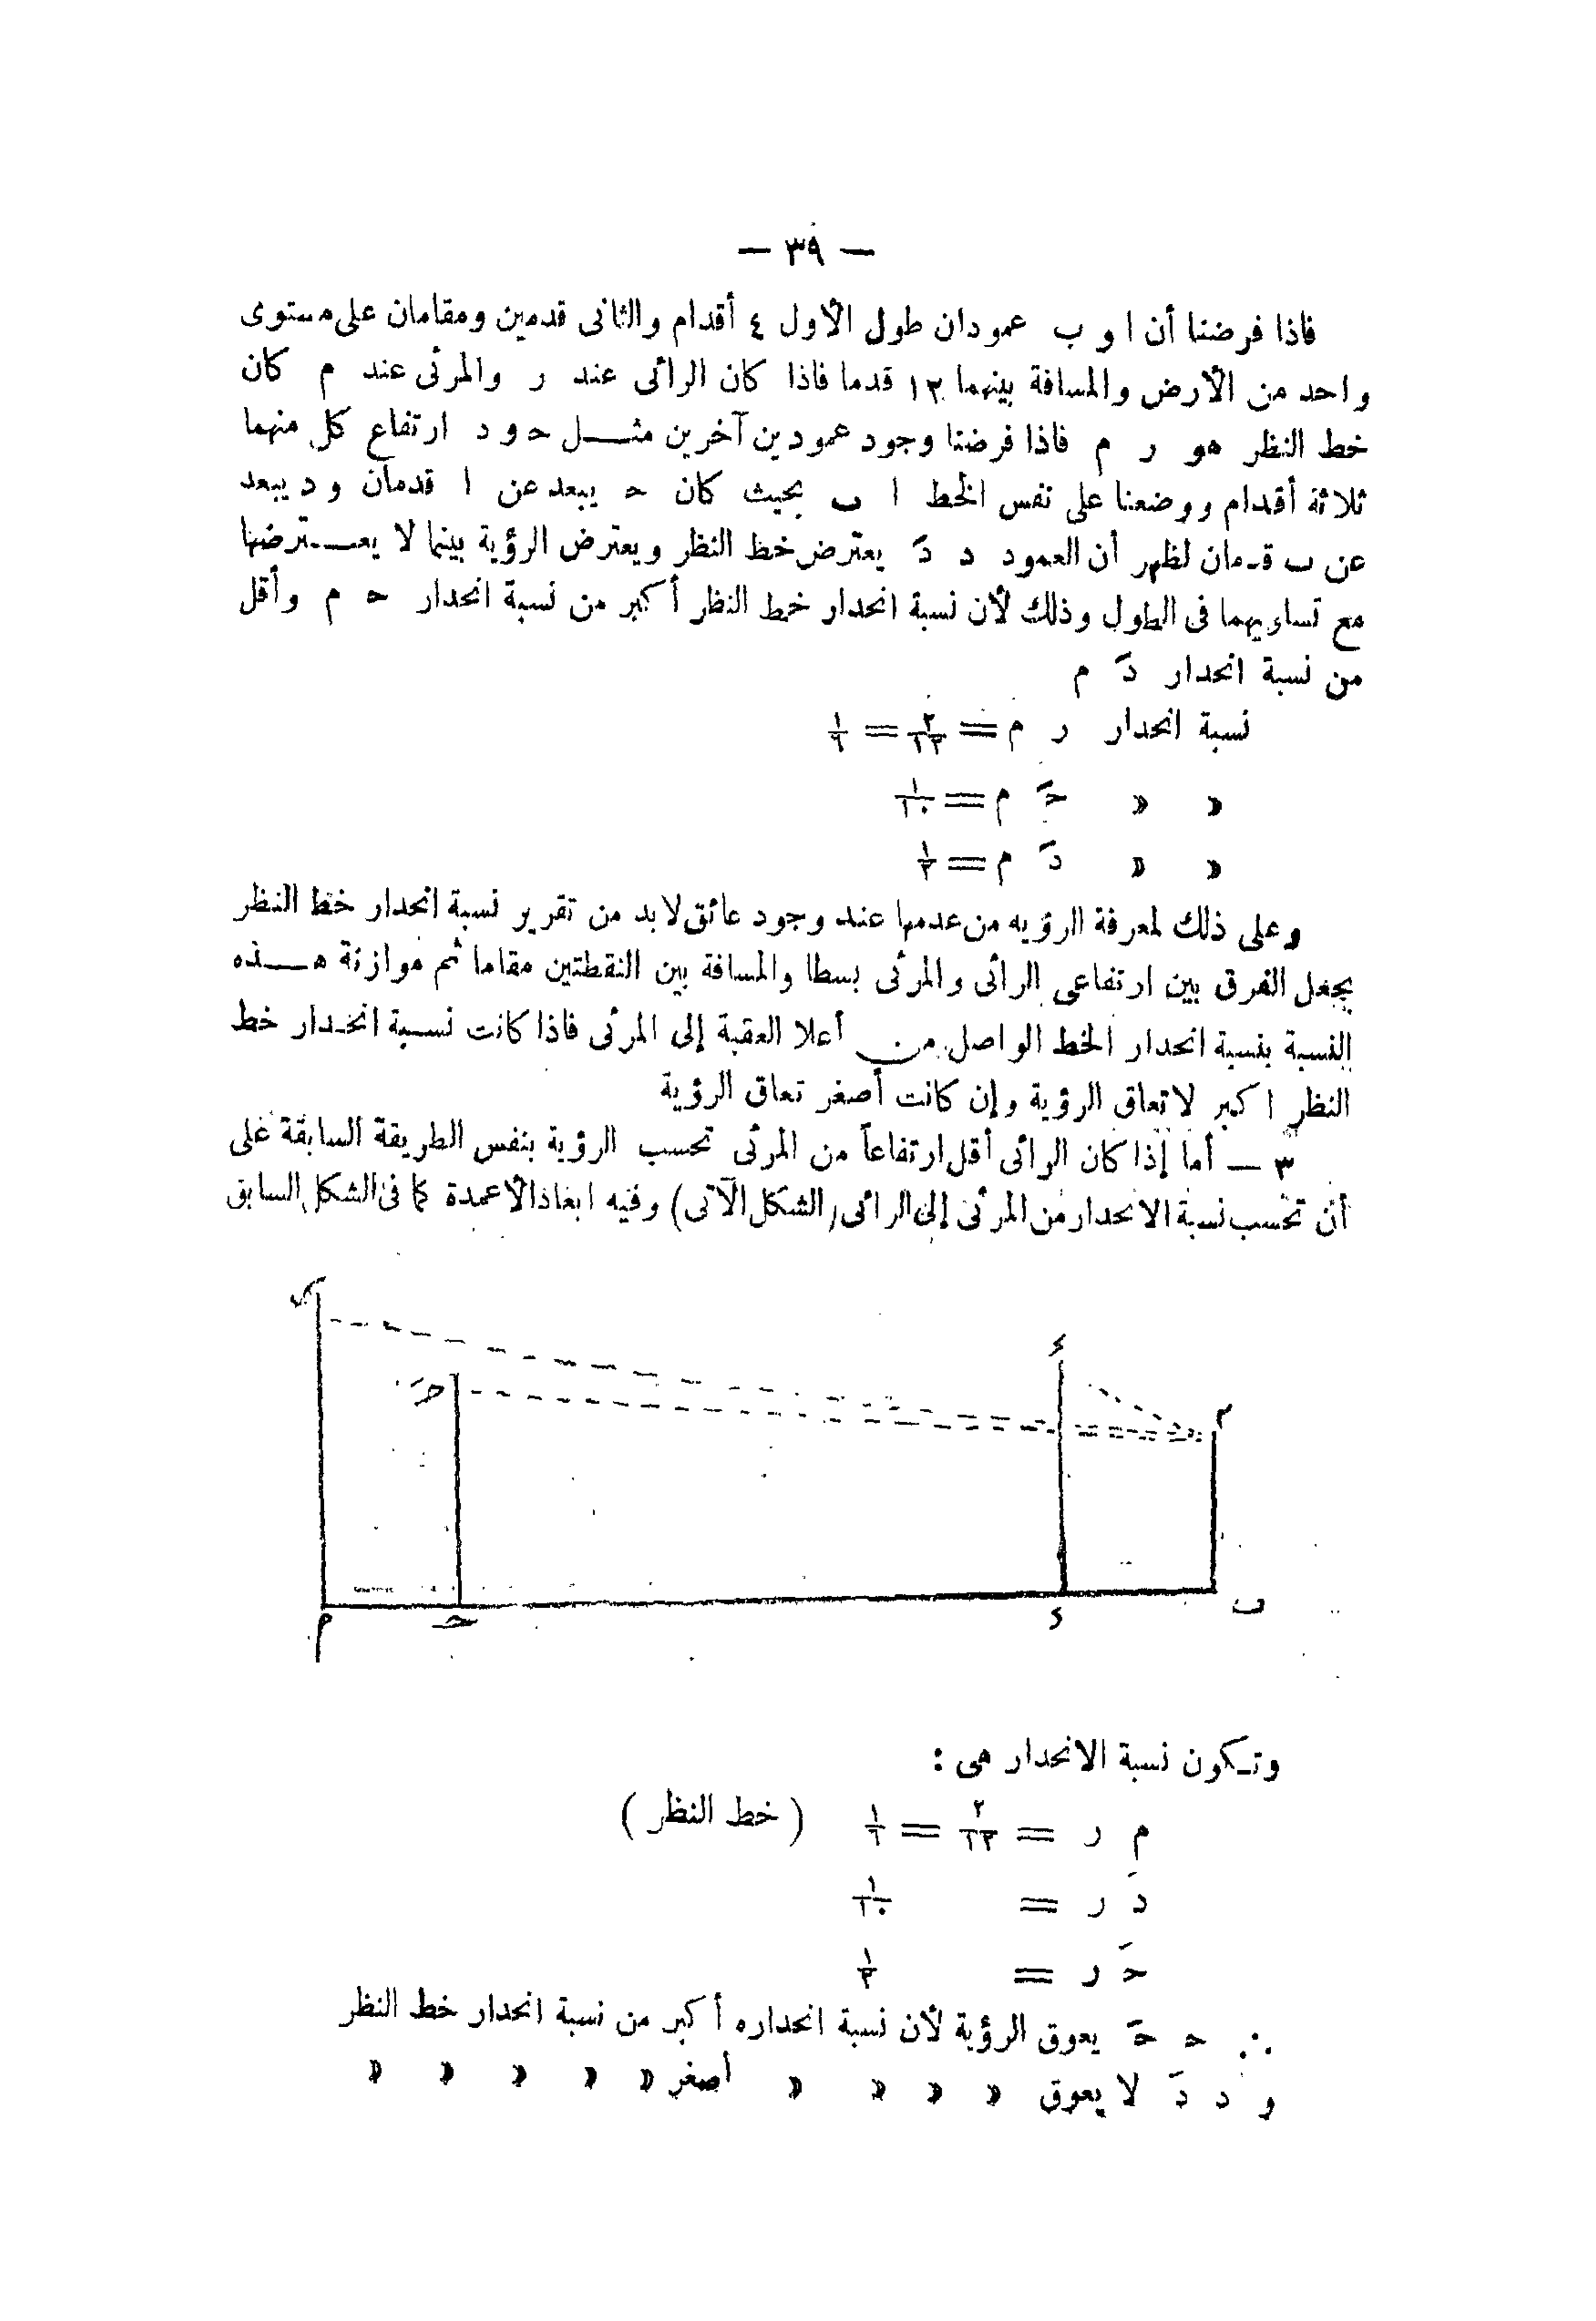 — ٣٩ —
فاذا فرضنا أن ا و ب عمودان طول الأول ٤ أقدام والثانى قدمين ومقامان على مستوى
واحد من الأرض والمسافة بينهما ١٢ قدما فاذا كان الرائى عند ر والمرئى عند م كان
خط النظر هو ر م فاذا فرضنا وجود عمودين آخرين مثــل حـ و د ارتفاع كل منهما
ثلاثة أقدام ووضعنا على نفس الخط ا ب بحيث كان حـ يبعد عن ا قدمان و د يبعد
عن ب قدمان لظهر أن العمود د دَ يعترض خط النظر ويعترض الرؤية بينما لا يعــترضها
مع تساويهما فى الطول وذلك لأن نسبة انحدار خط النظر أكبر من نسبة انحدار حـ م وأقل
من نسبة انحدار دَ م
نسبة انحدار ر م = ٢/١٢ = ١/٦
» » حـَ م = ١/١٠
» » دَ م = ١/٢
وعلى ذلك لمعرفة الرؤيه من عدمها عند وجود عائق لا بد من تقرير نسبة انحدار خط النظر
بجعل الفرق بين ارتفاعى الرائى والمرئى بسطا والمسافة بين النقطتين مقاما ثم موازنة هــذه
النسبة بنسبة انحدار الخط الواصل من أعلا العقبة إلى المرئى فاذا كانت نسبة انحدار خط
النظر اكبر لا تعاق الرؤية وإن كانت أصغر تعاق الرؤية
٣ — أما إذا كان الرائى أقل ارتفاعاً من المرئى تحسب الرؤية بنفس الطريقة السابقة على
أن تحسب نسبة الانحدار من المرئى إلى الرائى (الشكل الآتى) وفيه ابعاد الأعمدة كما فى الشكل السابق
ر
دَ
حـَ
م
م
حـ
د
ب
وتـكون نسبة الانحدار هى :
م ر = ٢/١٢ = ١/٦ ( خط النظر )
دَ ر = ١/١٠
حـَ ر = ١/٢
∴ حـ حـَ يعوق الرؤية لأن نسبة انحداره أكبر من نسبة انحدار خط النظر
و د دَ لا يعوق » » » » أصغر » » » » »